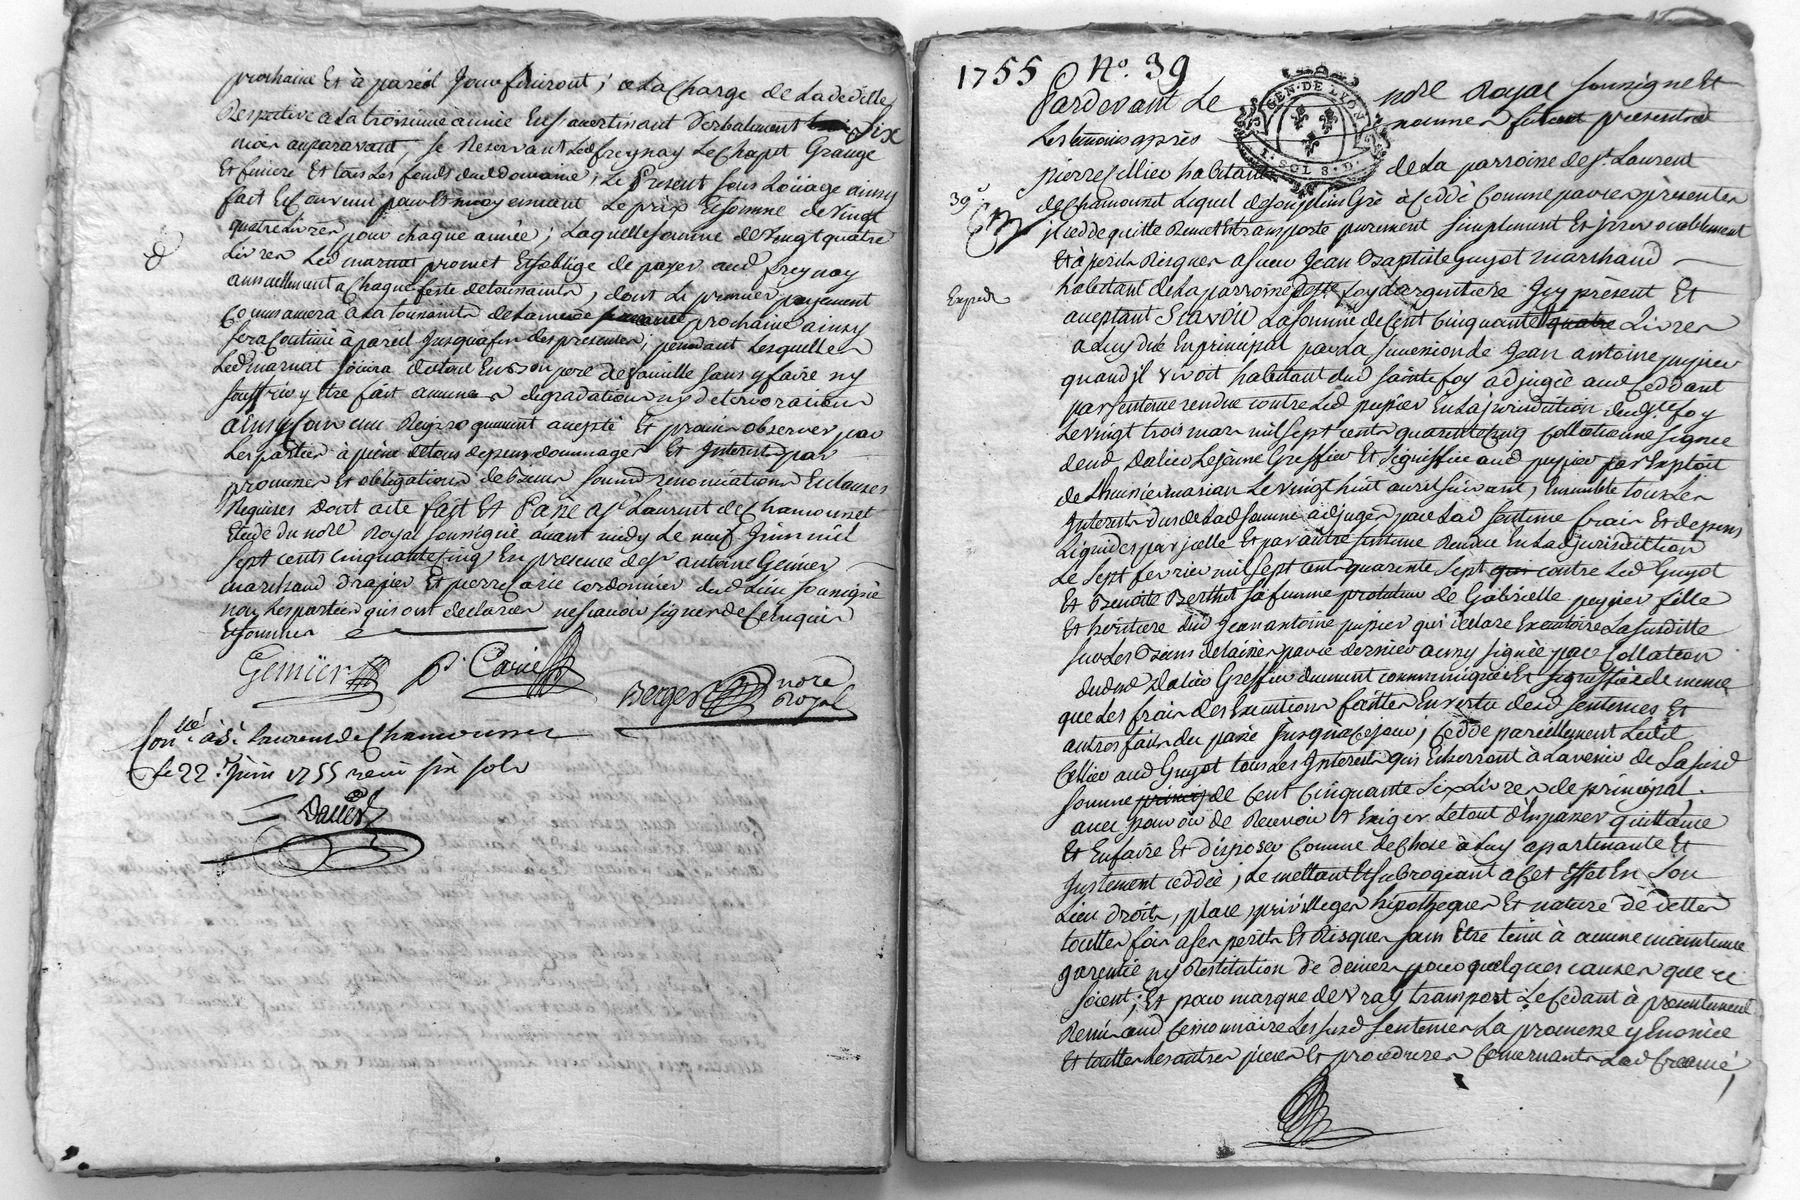 prochaine Et à pareil Jour finiront ; a La Charge de La dedille
Respective a La troisieme année En s'avertissant verballement Six
mois auparavant, Se Reservant Led freynay Le Chapt Grange
Et feniere Et tous Les fonds dud domaine ; Le Present sous Loüage aussy
fait Et Convenu pour Et moyennant Le prix Et somme de Vingt
quatre Livres pour chaque année ; Laquelle somme de Vingt quatre
Livres Led marnat promet Et soblige de payer aud freynay
annuellement a Chaque feste de toussaints, dont Le premier payement
Commancera à La toussaints de Lannée prochaine ainsy
sera Continué à pareil Jusqua fin des presentes ; pendant Lesquelles
Led marnat Joüira du tout En bon pere de famille sans y faire ny
souffrir y Etre fait aucunes degradations ny deterioration
ainsy Convenu Reciproquement accepté Et promis observer par
Les parties à peine de tous depens dommages Et Interests par
promesses Et obligations de biens soumissions renonciations Et clauses
Requises dont acte fait Et Passé a St Laurent de Chamousset
Etude du nore Royal soussigné avant midy Le neuf Juin mil
sept cents cinquante cinq En presence de sr antoine Genier
marchand drapier Et pierre Carie cordonnier dud Lieu soussignés
non Les parties qui ont declarés ne sçavoir signer de Ce enquis
Et sommés
Genier P. Carie
Berger nore Royal
Conlé à St Laurens de Chamousset
le 22 Juin 1755 receu six sols
Daller
1755 No. 39
Pardevant Le nore Royal soussigné Et
Les temoins après nommés fut present
GEN. DE LYON
1. SOL 8. D.
pierre Cellier habitant de La parroisse de St Laurent
de Chamousset Lequel de son plein Gré à Ceddé Comme par ces presentes
39
il cedde quitte Remet Et transporte purement simplement Et jrrevocablement
Et à perils Risques a sieur Jean Baptiste Guyot marchand
Exped
habitant de La parroisse de Ste foy Largentiere Icy présent Et
acceptant Scavoir La somme de Cent Cinquante quatre Livres
a Luy due En principal par La succession de Jean antoine pupier
quand il vivoit habitant dud sainte foy adjugée aud Ceddant
par sentence rendue contre Led pupier En La jurisdiction dud Ste foy
Le vingt trois mars mil sept cents quarante Cinq Collectionne signée
dud Dalier Lejeune Greffier Et signiffiée aud pupier par Exploit
de Lhuissier marian Le vingt huit avril suivant, Ensemble tous Les
Interests dus de Lad somme adjugés par Lad sentence frais Et depens
Liquidés par jcelle Et par autre sentence Rendue En Lad jurisdiction
Le sept fevrier mil sept cent quarante sept contre Led Guyot
Et Benoite Berthet sa femme protutrice de Gabrielle pupier fille
Et heritiere dud Jean antoine pupier qui declare Executoire La susditte
sur Les biens delaissés par ce dernier aussy signée par Collation
dud me Dalier Greffier dument communiquée Et signiffiée de meme
que Les frais des Executions faittes En vertu desd sentences Et
autres faits du passé Jusqua Ce jour ; Cedde pareillement Ledit
Cellier aud Guyot tous Les Interests qui Encourront à Lavenir de La susd
somme de Cent Cinquante six Livres de principal
avec pouvoir de Recevoir Et Exiger Le tout d'En passer quittance
Et En faire Et disposer Comme de Chose à Luy apartenante Et
Justement ceddée ; Le mettant Et subrogeant a Cet Effet En Son
Lieu droits, place, privilleges hipotheques Et nature de dettes
touttes fois a ses perils Et Risques sans Etre tenu à aucune maintenue
garentie ny Restitution de deniers pour quelques causes que ce
soient ; Et pour marque de vray transport Le Cedant à presentement
Remis aud Cessionnaire Les susd sentences La promesse y Enoncée
Et touttes Les autres pieces Et procedures Concernants Lad Creance